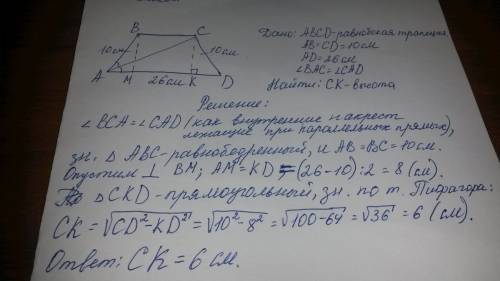 B C
10см 10см
A M 26см K D
Дано: ABCD-равнобокая трапеция
AB=CD=10см
AD=26см
∠BAC=∠CAD
Найти: CK-высота
Решение:
∠BCA=∠CAD (как внутренние накрест
лежащие при параллельных прямых),
зн. △ ABC-равнобедренный, и AB=BC=10см.
Опустим ⊥ BM; AM=KD=(26-10):2=8(см).
△ CKD-прямоугольный, зн. по т. Пифагора:
CK=√CD²-KD²=√10²-8²=√100-64=√36=6(см).
Ответ: CK=6см.